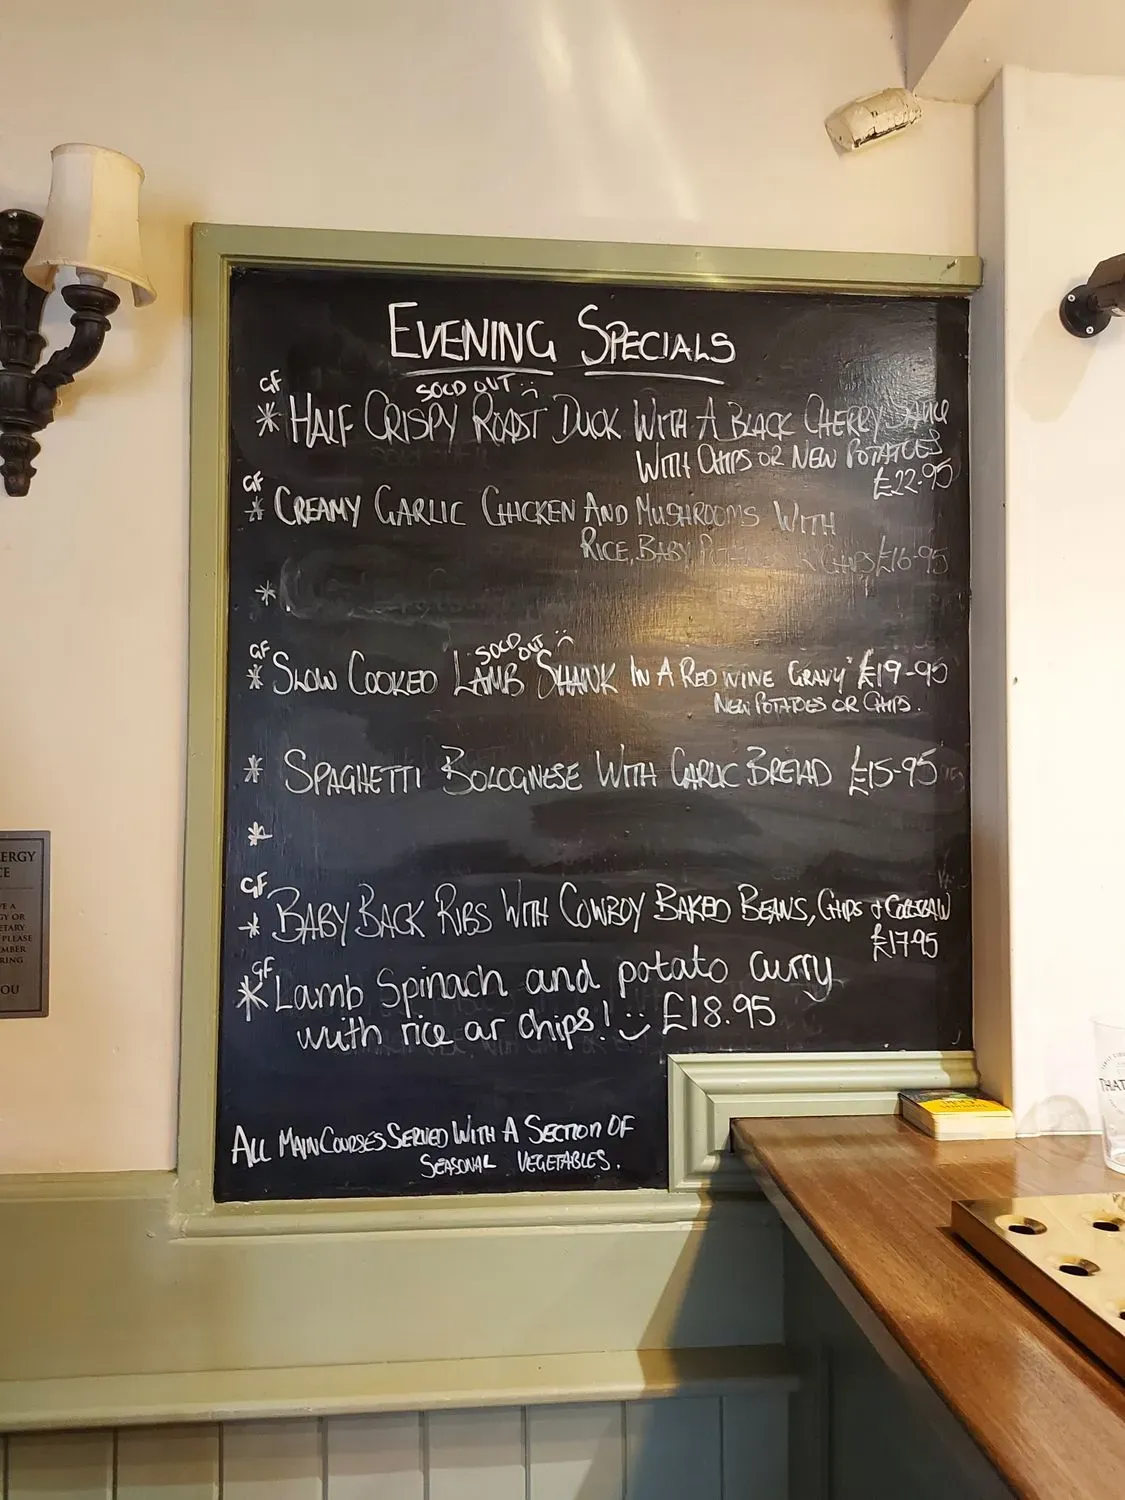 EVENING SPECIALS
SOLD OUT :(
GF
* HALF CRISPY ROAST DUCK WITH A BLACK CHERRY SAUCE
WITH CHIPS OR NEW POTATOES
£22-95
GF
* CREAMY GARLIC CHICKEN AND MUSHROOMS WITH
RICE, BABY CHIPS £16-95
*
SOLD OUT :(
GF
* SLOW COOKED LAMB SHANK IN A RED WINE GRAVY £19-95
NEW POTATOES OR CHIPS.
* SPAGHETTI BOLOGNESE WITH GARLIC BREAD £15-95
*
GF
* BABY BACK RIBS WITH COWBOY BAKED BEANS, CHIPS + COLESLAW
£17.95
GF
* Lamb Spinach and potato curry
with rice or chips! :) £18.95
ALL MAIN COURSES SERVED WITH A SECTION OF
SEASONAL VEGETABLES.
ERGY
CE
VE A
GY OR
ETARY
PLEASE
MBER
RING
OU
THAT